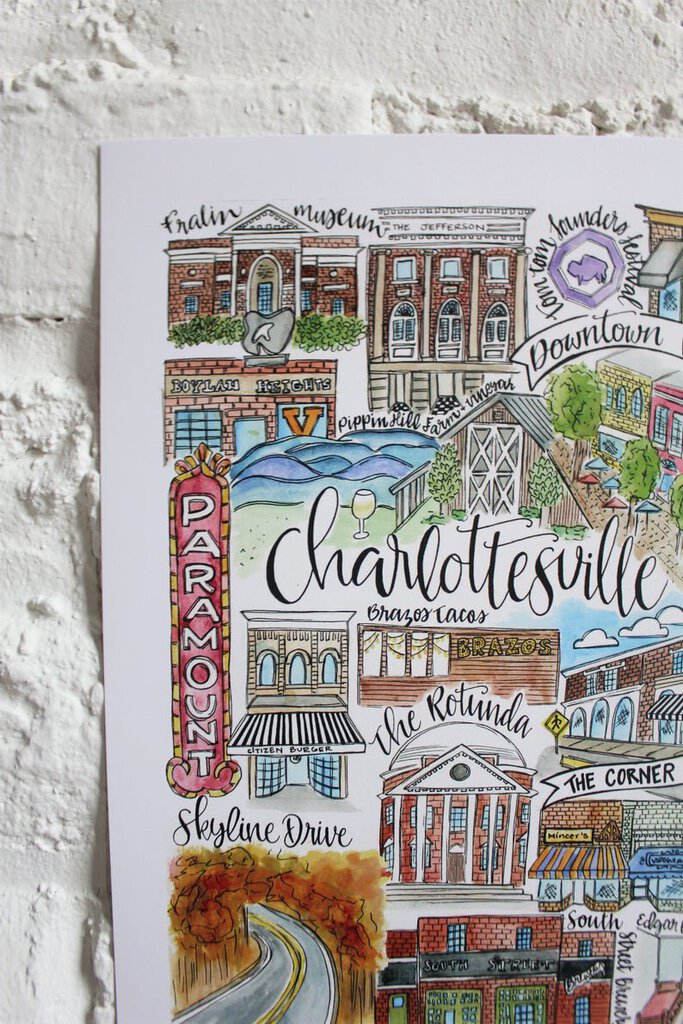 Fralin Museum
THE JEFFERSON
Tom Tom Founders Festival
Downtown
BOYLAN HEIGHTS
V
Pippin Hill Farm + Vineyard
PARAMOUNT
Charlottesville
Brazos Tacos
BRAZOS
CITIZEN BURGER
The Rotunda
THE CORNER
Skyline Drive
Mincer's
South Street Brewery
SOUTH STREET